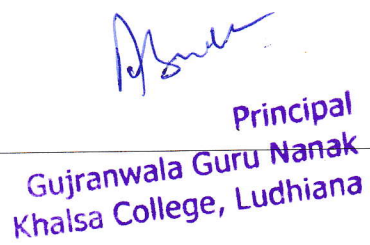 Principal
Gujranwala Guru Nanak
Khalsa College, Ludhiana